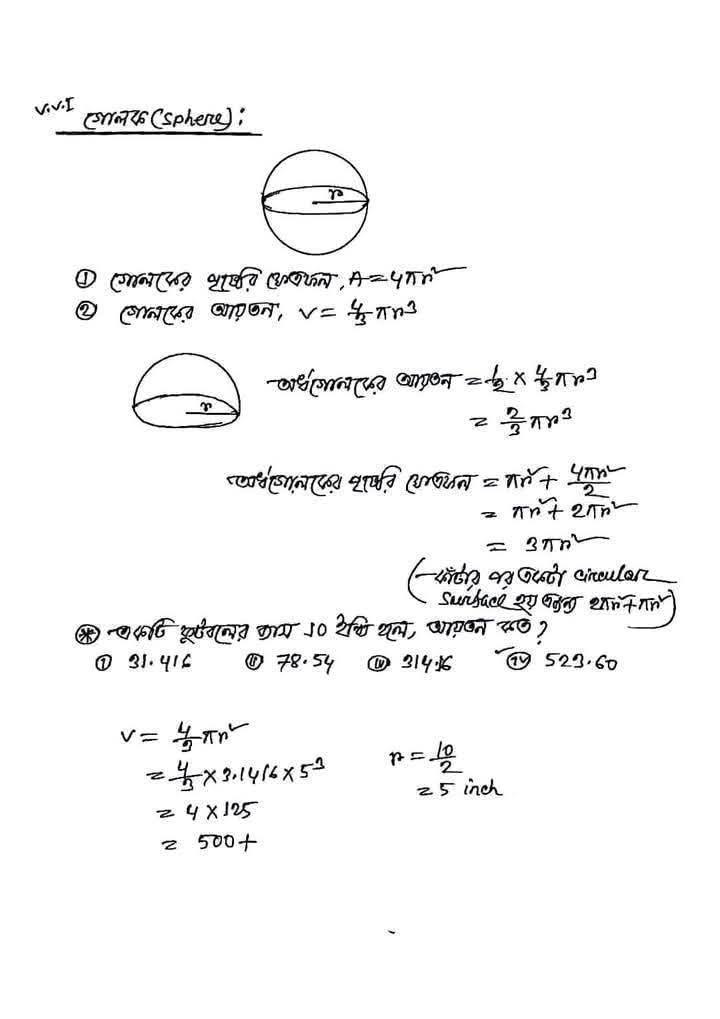 V.V.I গোলক (Sphere):
r
① গোলকের পৃষ্ঠের ক্ষেত্রফল, A = 4πr²
② গোলকের আয়তন, V = 4/3 πr³
r
অর্ধগোলকের আয়তন = 1/2 × 4/3 πr³
= 2/3 πr³
অর্ধগোলকের পৃষ্ঠের ক্ষেত্রফল = πr² + 4πr²/2
= πr² + 2πr²
= 3πr²
(কাটার পর একটা circular
surface হয় এজন্য 2πr²+πr²)
⊛ একটি ফুটবলের ব্যাস 10 ইঞ্চি হলে, আয়তন কত?
(i) 31.416 (ii) 78.54 (iii) 314.16 ✓(iv) 523.60
V = 4/3 πr²
= 4/3 × 3.1416 × 5³
= 4 × 125
= 500+
r = 10/2
= 5 inch